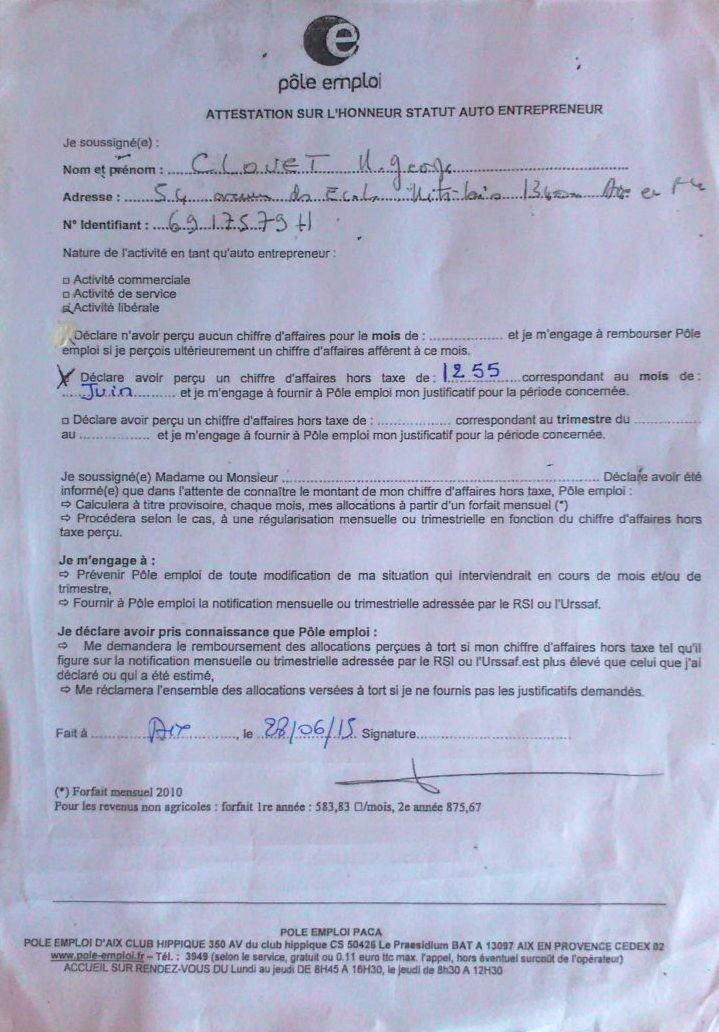 e
pôle emploi
ATTESTATION SUR L'HONNEUR STATUT AUTO ENTREPRENEUR
Je soussigné(e) :
Nom et prénom : CLOUET
Adresse : 54 13400
N° Identifiant : 6917579 H
Nature de l'activité en tant qu'auto entrepreneur :
□ Activité commerciale
□ Activité de service
□ Activité libérale
Déclare n'avoir perçu aucun chiffre d'affaires pour le mois de : .................. et je m'engage à rembourser Pôle
emploi si je perçois ultérieurement un chiffre d'affaires afférent à ce mois.
X Déclare avoir perçu un chiffre d'affaires hors taxe de : 1255 correspondant au mois de :
Juin et je m'engage à fournir à Pôle emploi mon justificatif pour la période concernée.
□ Déclare avoir perçu un chiffre d'affaires hors taxe de : .................. correspondant au trimestre du ..................
au .................. et je m'engage à fournir à Pôle emploi mon justificatif pour la période concernée.
Je soussigné(e) Madame ou Monsieur .................. Déclare avoir été
informé(e) que dans l'attente de connaître le montant de mon chiffre d'affaires hors taxe, Pôle emploi :
⇨ Calculera à titre provisoire, chaque mois, mes allocations à partir d'un forfait mensuel (*)
⇨ Procédera selon le cas, à une régularisation mensuelle ou trimestrielle en fonction du chiffre d'affaires hors
taxe perçu.
Je m'engage à :
⇨ Prévenir Pôle emploi de toute modification de ma situation qui interviendrait en cours de mois et/ou de
trimestre,
⇨ Fournir à Pôle emploi la notification mensuelle ou trimestrielle adressée par le RSI ou l'Urssaf.
Je déclare avoir pris connaissance que Pôle emploi :
⇨ Me demandera le remboursement des allocations perçues à tort si mon chiffre d'affaires hors taxe tel qu'il
figure sur la notification mensuelle ou trimestrielle adressée par le RSI ou l'Urssaf.est plus élevé que celui que j'ai
déclaré ou qui a été estimé,
⇨ Me réclamera l'ensemble des allocations versées à tort si je ne fournis pas les justificatifs demandés.
Fait à Aix, le 28/06/15 Signature..................
(*) Forfait mensuel 2010
Pour les revenus non agricoles : forfait 1re année : 583,83 □/mois, 2e année 875,67
POLE EMPLOI PACA
POLE EMPLOI D'AIX CLUB HIPPIQUE 350 AV du club hippique CS 50426 Le Praesidium BAT A 13097 AIX EN PROVENCE CEDEX 02
www.pole-emploi.fr – Tél. : 3949 (selon le service, gratuit ou 0.11 euro ttc max. l'appel, hors éventuel surcoût de l'opérateur)
ACCUEIL SUR RENDEZ-VOUS DU Lundi au jeudi DE 8H45 A 16H30, le jeudi de 8h30 A 12H30